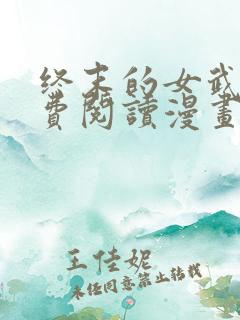 终末的女武
費閱讀漫畫
王佳妮
未经同意禁止转载